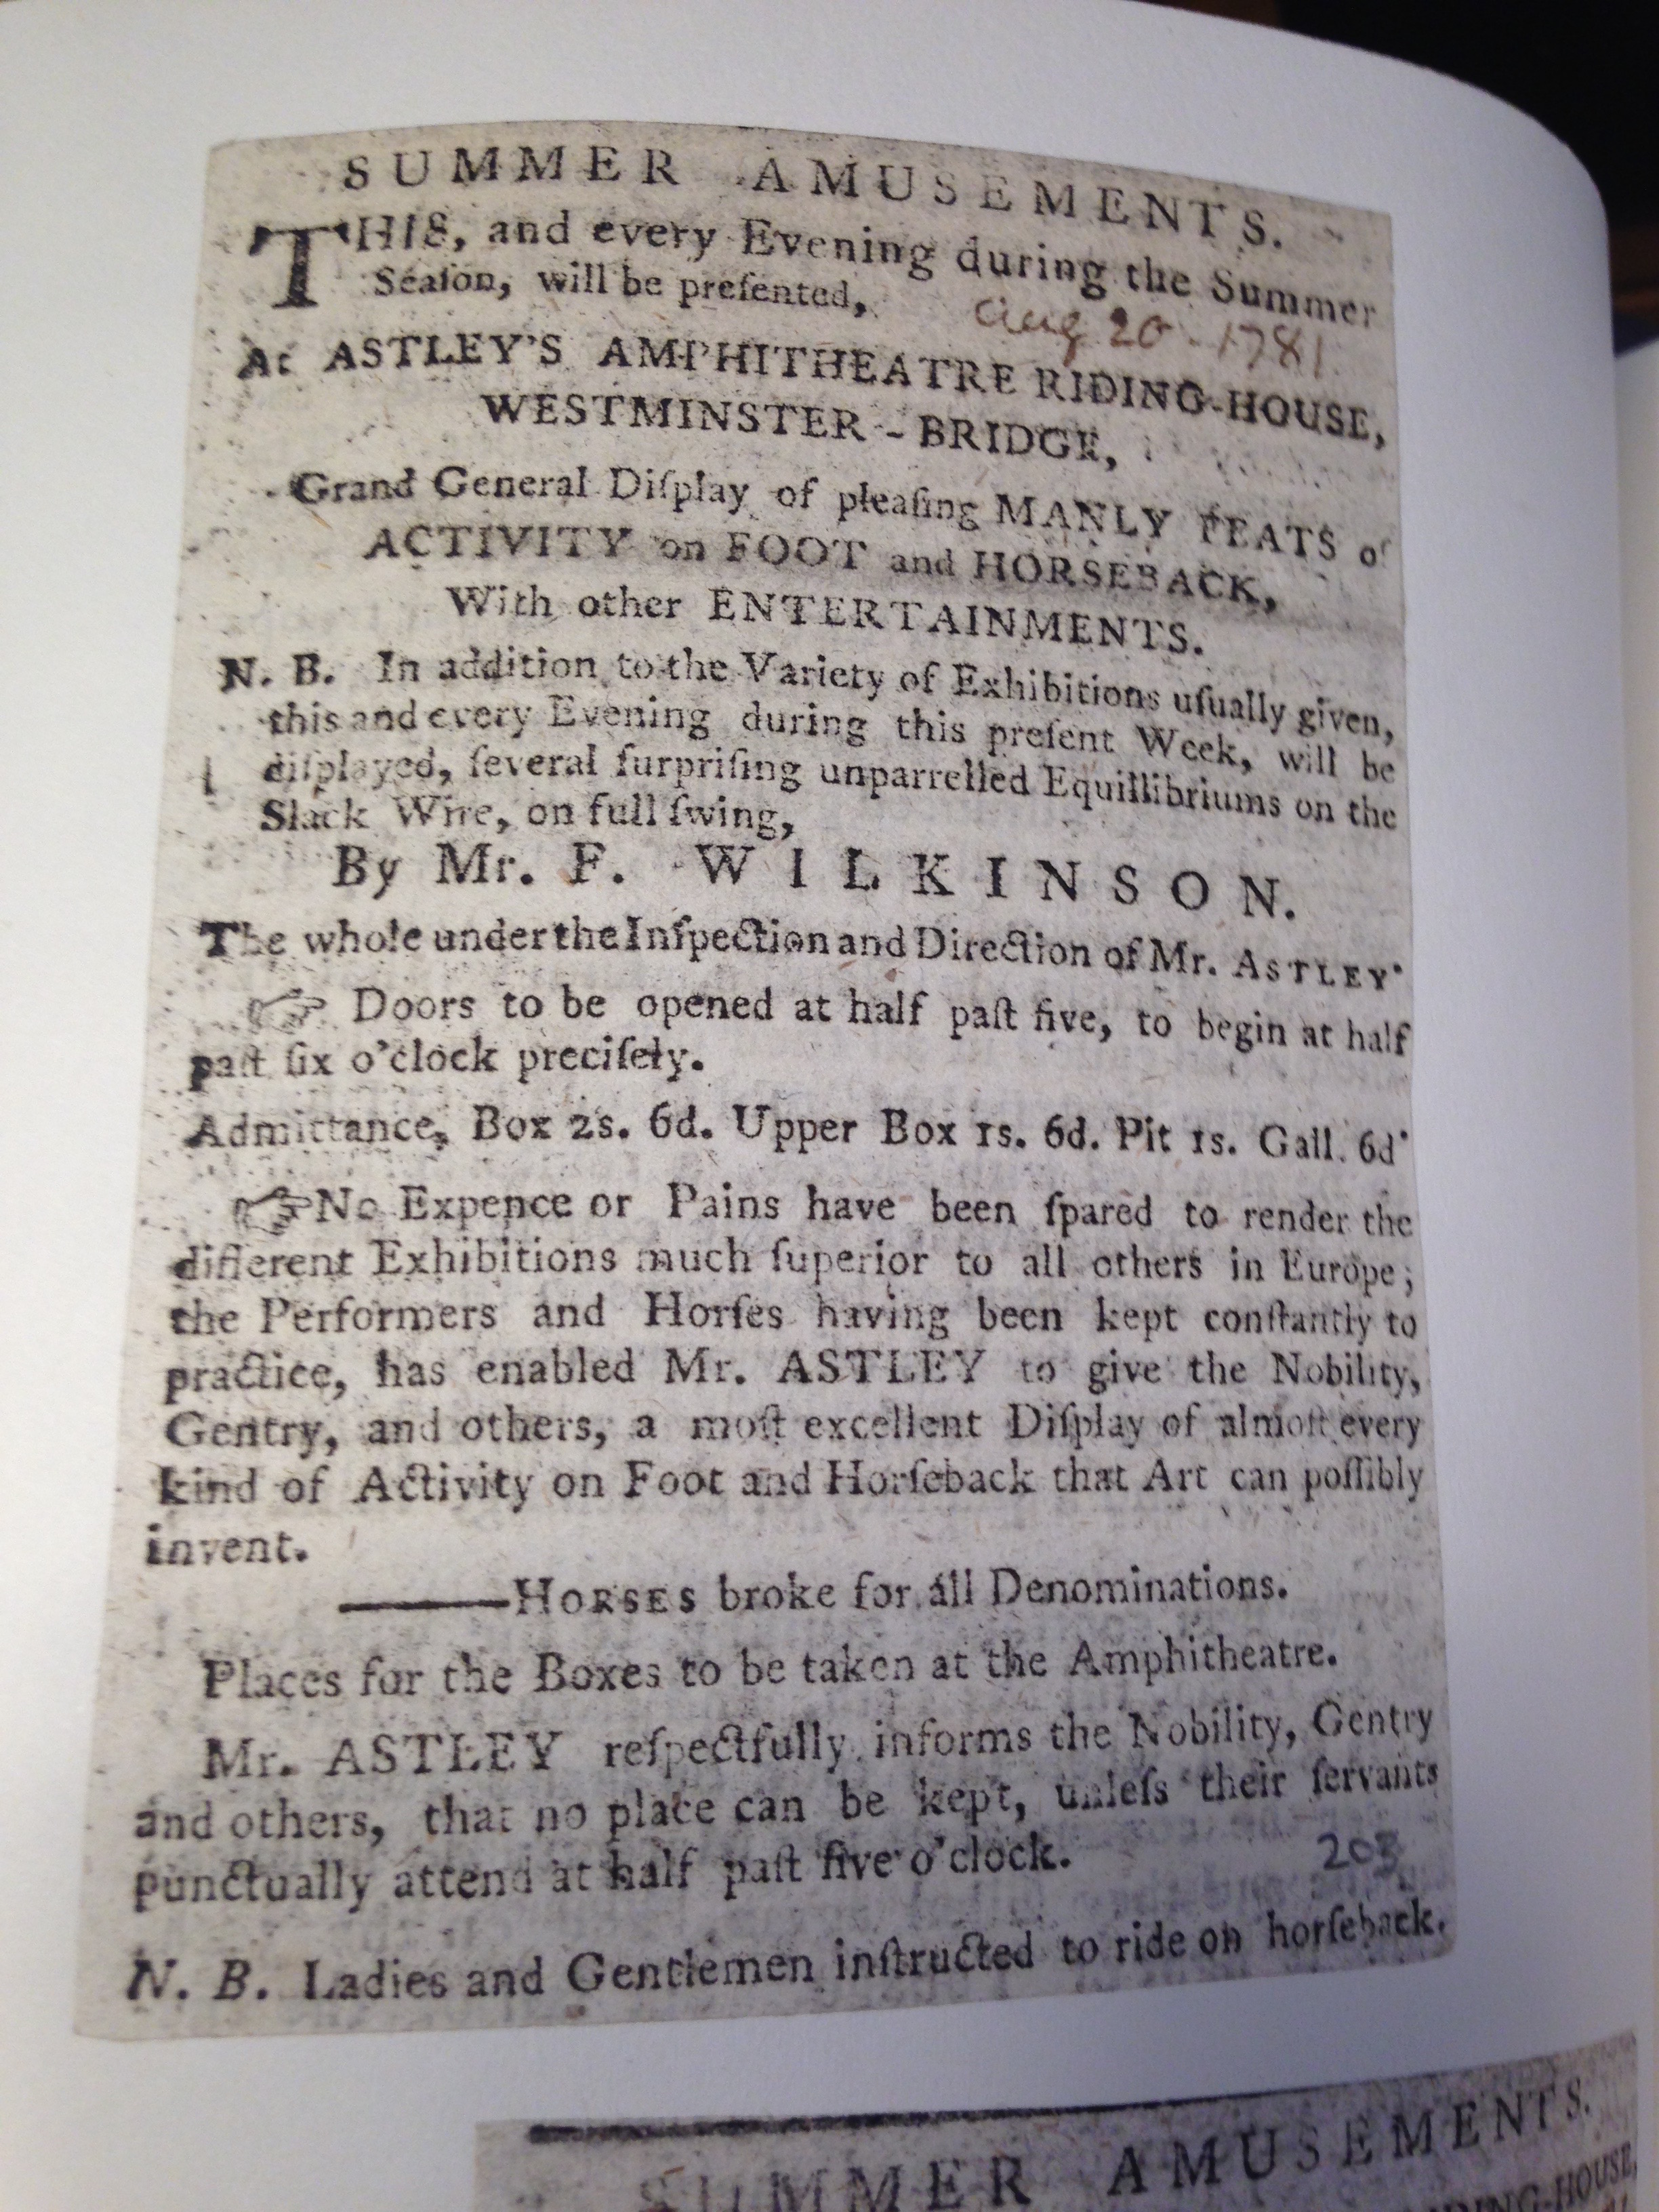 SUMMER AMUSEMENTS.
THIS, and every Evening during the Summer
Seaſon, will be preſented,
Aug 20 - 1781
At ASTLEY'S AMPHITHEATRE RIDING-HOUSE,
WESTMINSTER-BRIDGE,
Grand General Diſplay of pleaſing MANLY FEATS of
ACTIVITY on FOOT and HORSEBACK,
With other ENTERTAINMENTS.
N. B. In addition to the Variety of Exhibitions uſually given,
this and every Evening during this preſent Week, will be
diſplayed, ſeveral ſurpriſing unparrelled Equillibriums on the
Slack Wire, on full ſwing,
By Mr. F. WILKINSON.
The whole under the Inſpection and Direction of Mr. ASTLEY.
☞ Doors to be opened at half paſt five, to begin at half
paſt ſix o'clock preciſely.
Admittance, Box 2s. 6d. Upper Box 1s. 6d. Pit 1s. Gall. 6d.
☞ No Expence or Pains have been ſpared to render the
different Exhibitions much ſuperior to all others in Europe;
the Performers and Horſes having been kept conſtantly to
practice, has enabled Mr. ASTLEY to give the Nobility,
Gentry, and others, a moſt excellent Diſplay of almoſt every
kind of Activity on Foot and Horſeback that Art can poſſibly
invent.
——HORSES broke for all Denominations.
Places for the Boxes to be taken at the Amphitheatre.
Mr. ASTLEY reſpectfully informs the Nobility, Gentry
and others, that no place can be kept, unleſs their ſervants
punctually attend at half paſt five o'clock.
203
N. B. Ladies and Gentlemen inſtructed to ride on horſeback.
SUMMER AMUSEMENTS.
RIDING-HOUSE,